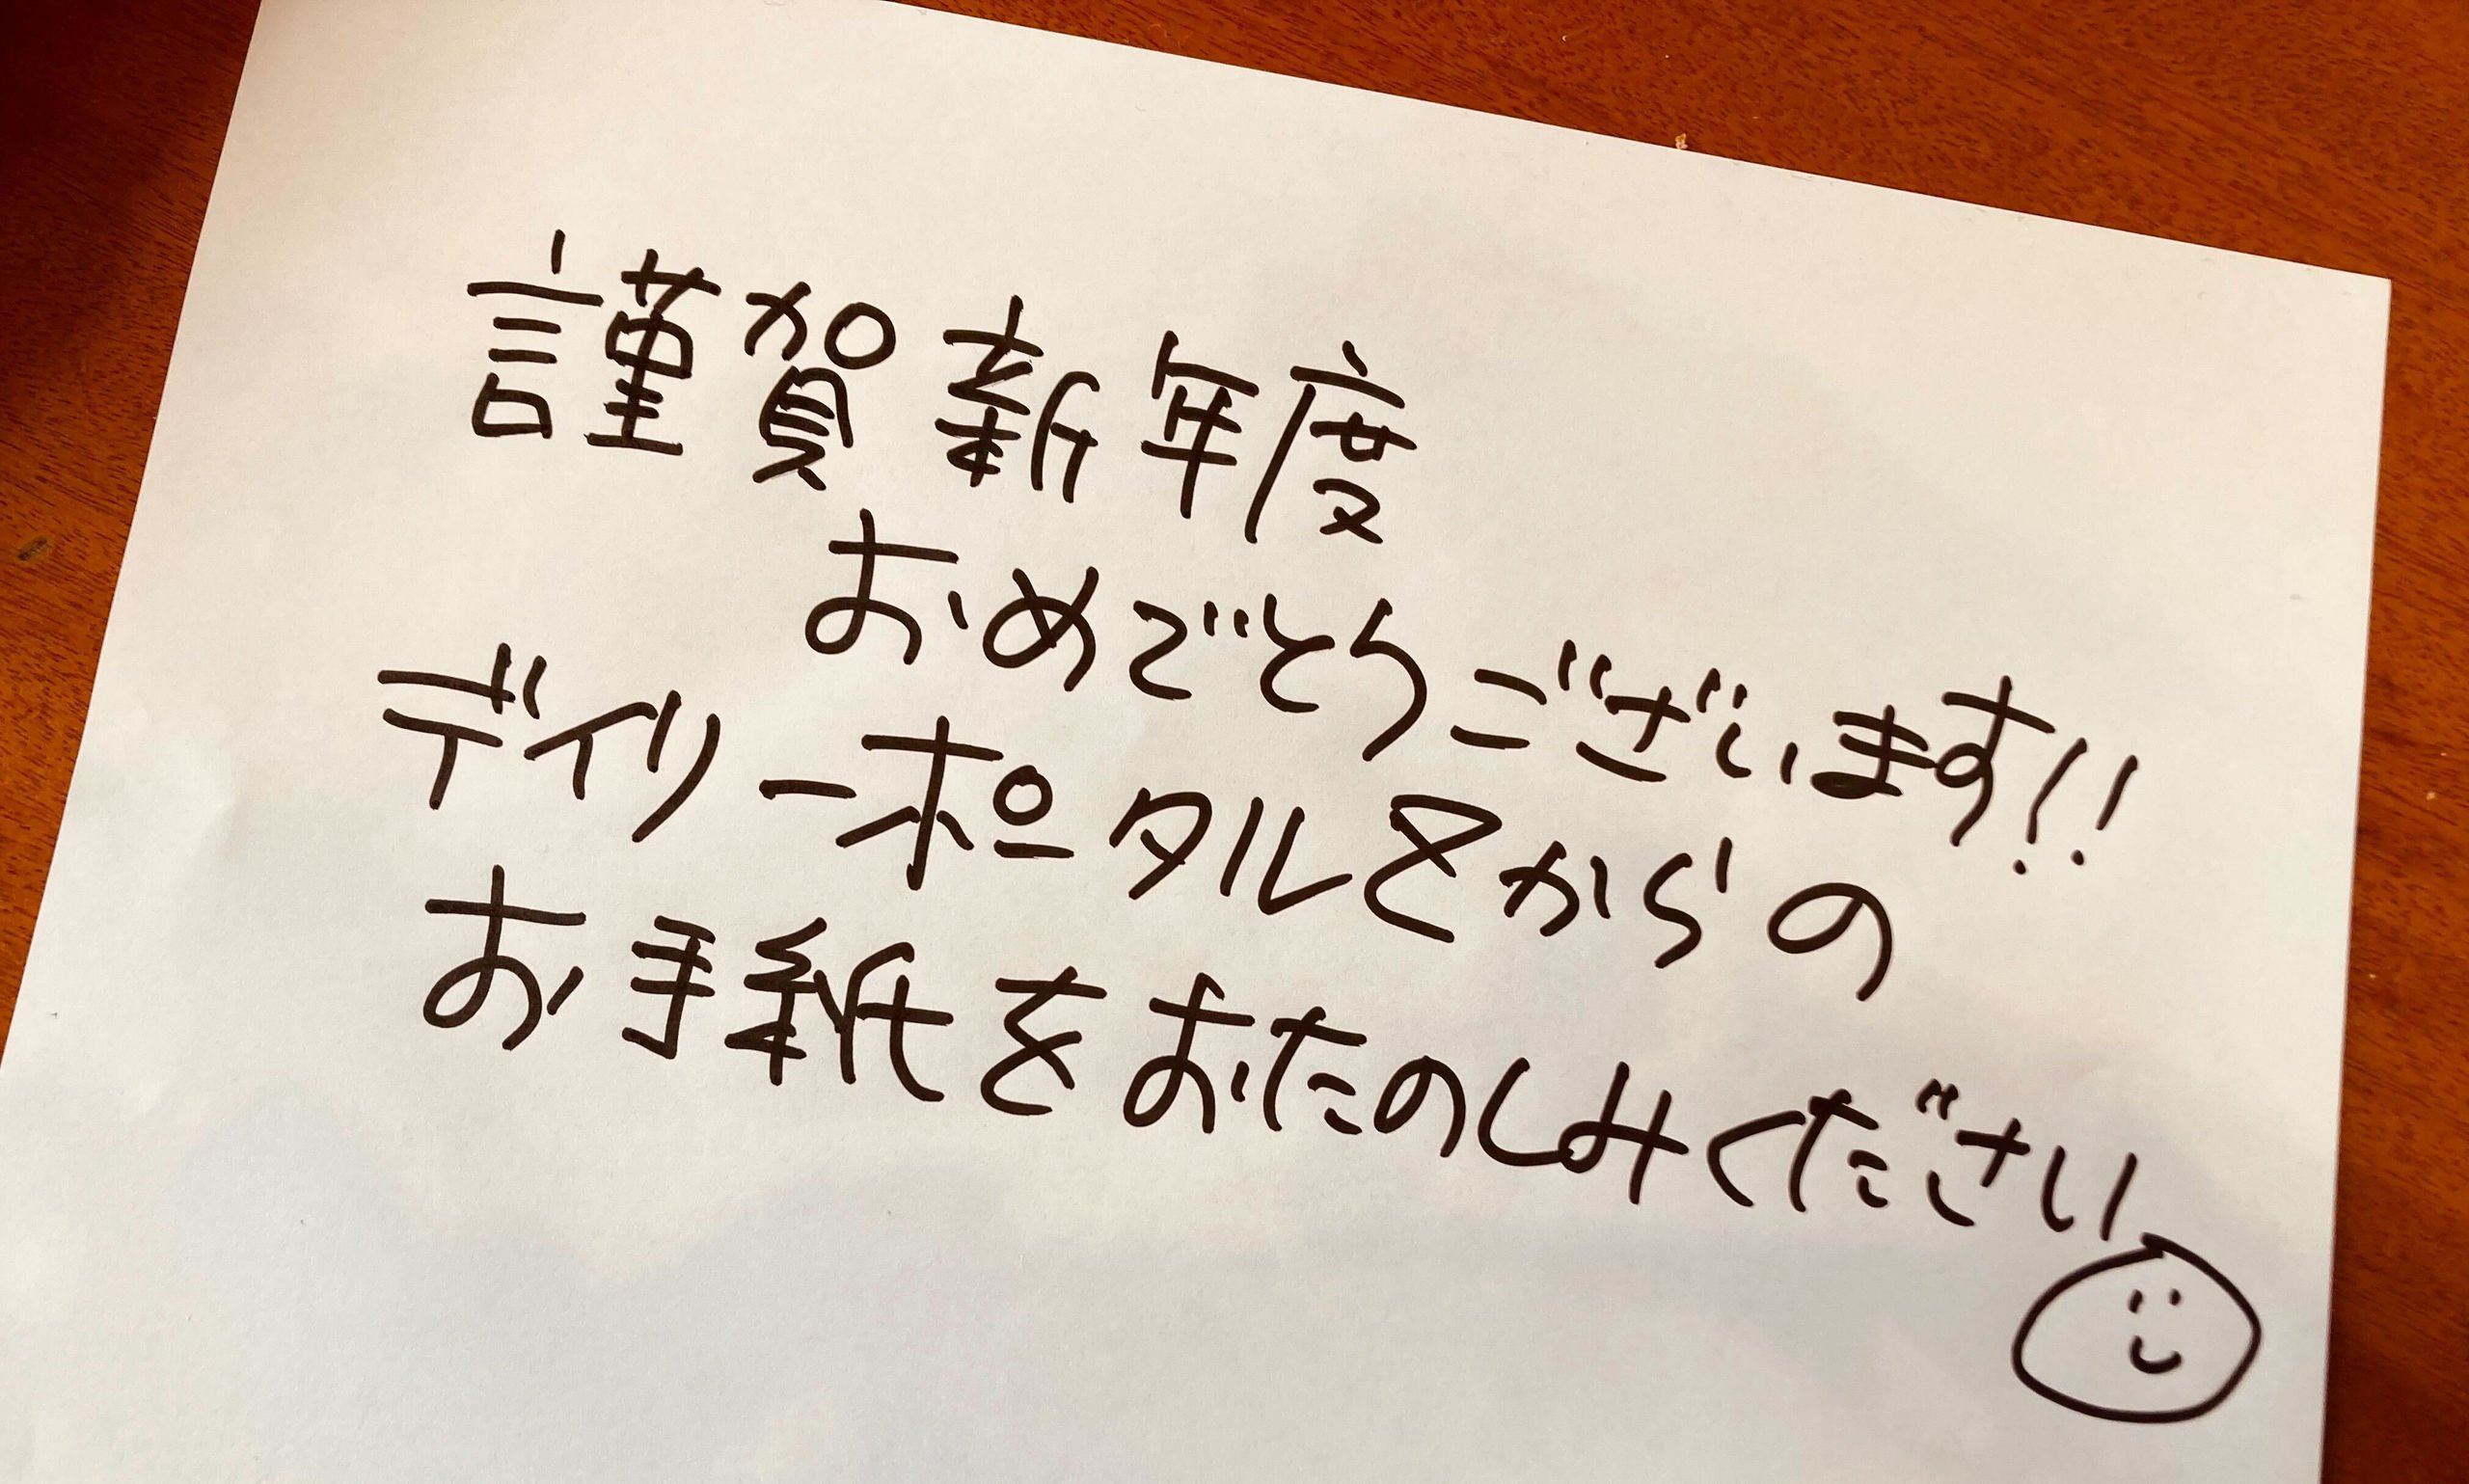 謹賀新年度
おめでとうございます!!
デイリーポータルZからの
お手紙をおたのしみください